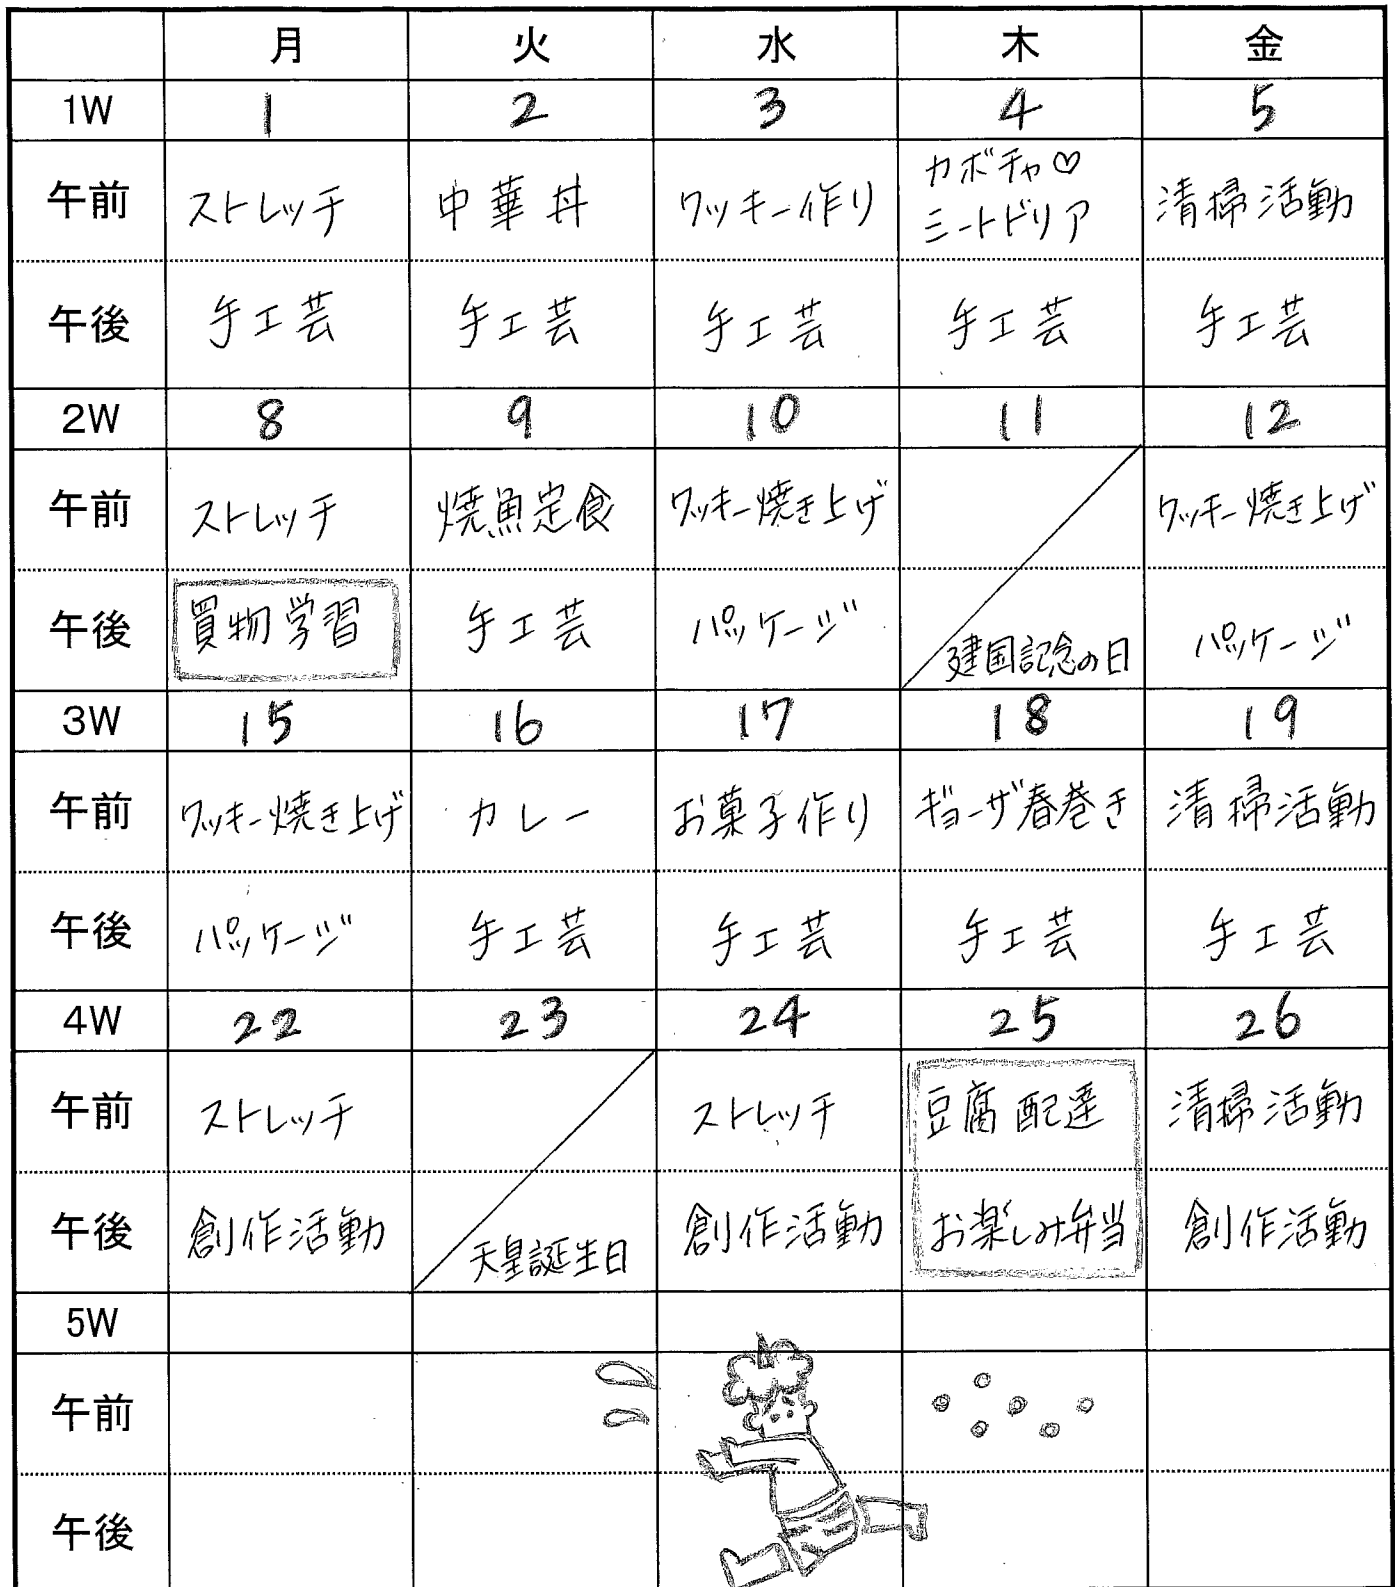 月 火 水 木 金
1W 1 2 3 4 5
午前 ストレッチ 中華丼 クッキー作り カボチャ♡ 清掃活動
ミートドリア
午後 手工芸 手工芸 手工芸 手工芸 手工芸
2W 8 9 10 11 12
午前 ストレッチ 焼魚定食 クッキー焼き上げ クッキー焼き上げ
午後 買物学習 手工芸 パッケージ 建国記念の日 パッケージ
3W 15 16 17 18 19
午前 クッキー焼き上げ カレー お菓子作り ギョーザ春巻き 清掃活動
午後 パッケージ 手工芸 手工芸 手工芸 手工芸
4W 22 23 24 25 26
午前 ストレッチ ストレッチ 豆腐配達 清掃活動
午後 創作活動 天皇誕生日 創作活動 お楽しみ弁当 創作活動
5W
午前
午後